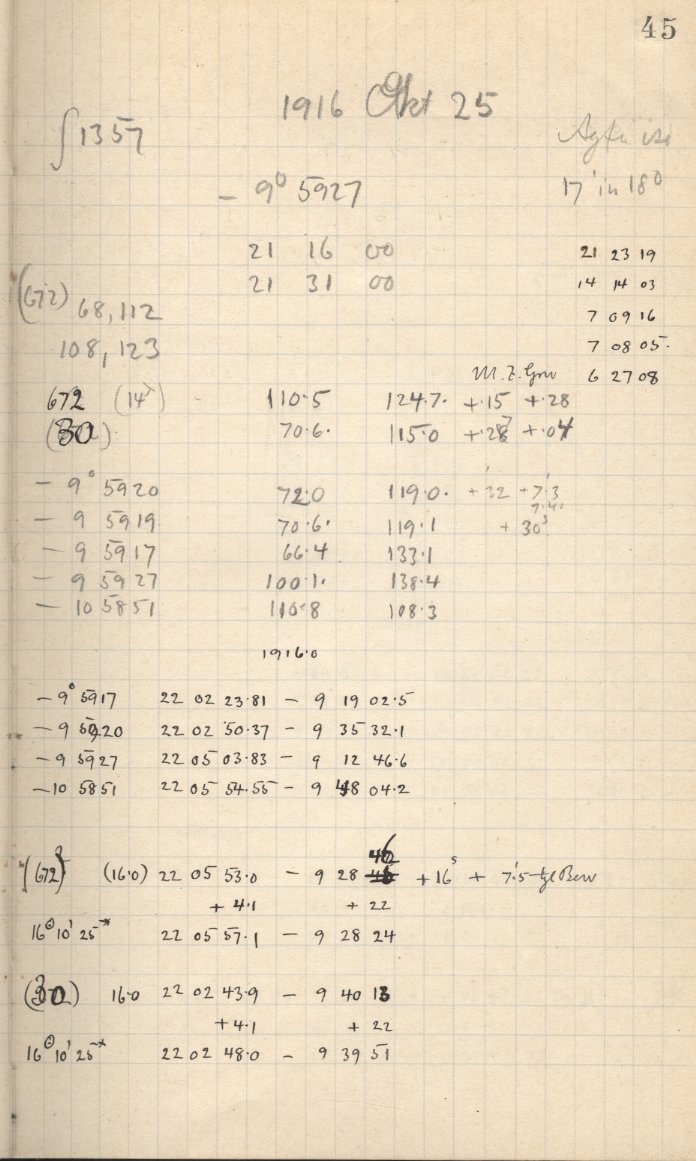 45
1916 Okt 25
∫1357
17' in 18°
- 9° 5927
21 16 00
21 23 19
21 31 00
14 14 03
(672) 68,112
7 09 16
108, 123
7 08 05.
M. Z. Grw 6 27 08
672 (14) 110.5 124.7. +.15 +.28
(30) 70.6. 115.0 +.28 +.04
- 9° 5920 72.0 119.0. +32 +7.3
- 9 5919 70.6. 119.1 + 30
- 9 5917 66.4 133.1
- 9 5927 100.1. 138.4
- 10 5851 110.8 108.3
1916.0
- 9° 5917 22 02 23.81 - 9 19 02.5
- 9 5920 22 02 50.37 - 9 35 32.1
- 9 5927 22 05 03.83 - 9 12 46.6
- 10 5851 22 05 54.55 - 9 48 04.2
(672) (16.0) 22 05 53.0 - 9 28 46 +16ˢ + 7.'5 tgl Bew
+ 4.1 + 22
16° 10' 25* 22 05 57.1 - 9 28 24
(30) 16.0 22 02 43.9 - 9 40 13
+ 4.1 + 22
16° 10' 25* 22 02 48.0 - 9 39 51